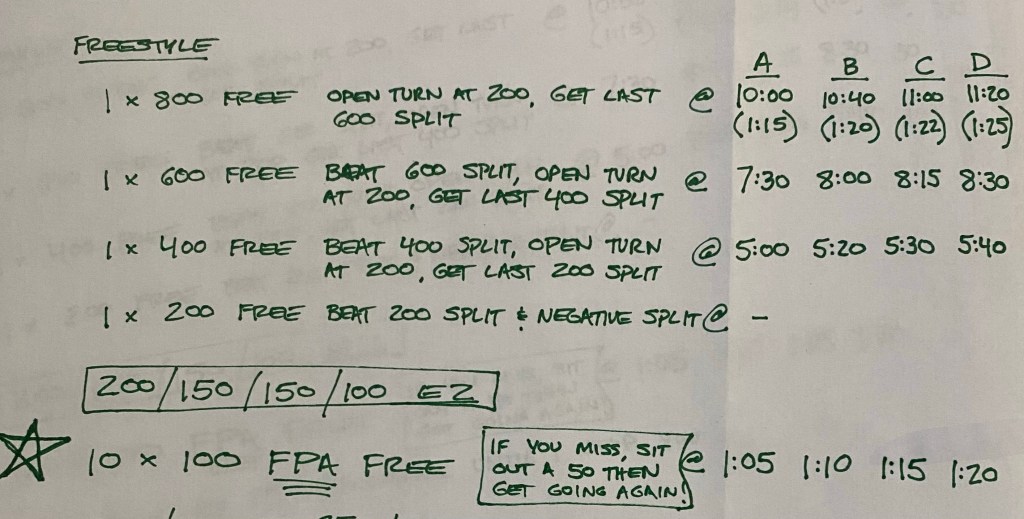 FREESTYLE
A B C D
1 x 800 FREE OPEN TURN AT 200, GET LAST @ 10:00 10:40 11:00 11:20
600 SPLIT (1:15) (1:20) (1:22) (1:25)
1 x 600 FREE BEAT 600 SPLIT, OPEN TURN @ 7:30 8:00 8:15 8:30
AT 200, GET LAST 400 SPLIT
1 x 400 FREE BEAT 400 SPLIT, OPEN TURN @ 5:00 5:20 5:30 5:40
AT 200, GET LAST 200 SPLIT
1 x 200 FREE BEAT 200 SPLIT & NEGATIVE SPLIT @ -
200/150/150/100 EZ
10 x 100 FPA FREE
IF YOU MISS, SIT
OUT A 50 THEN
GET GOING AGAIN!
@ 1:05 1:10 1:15 1:20